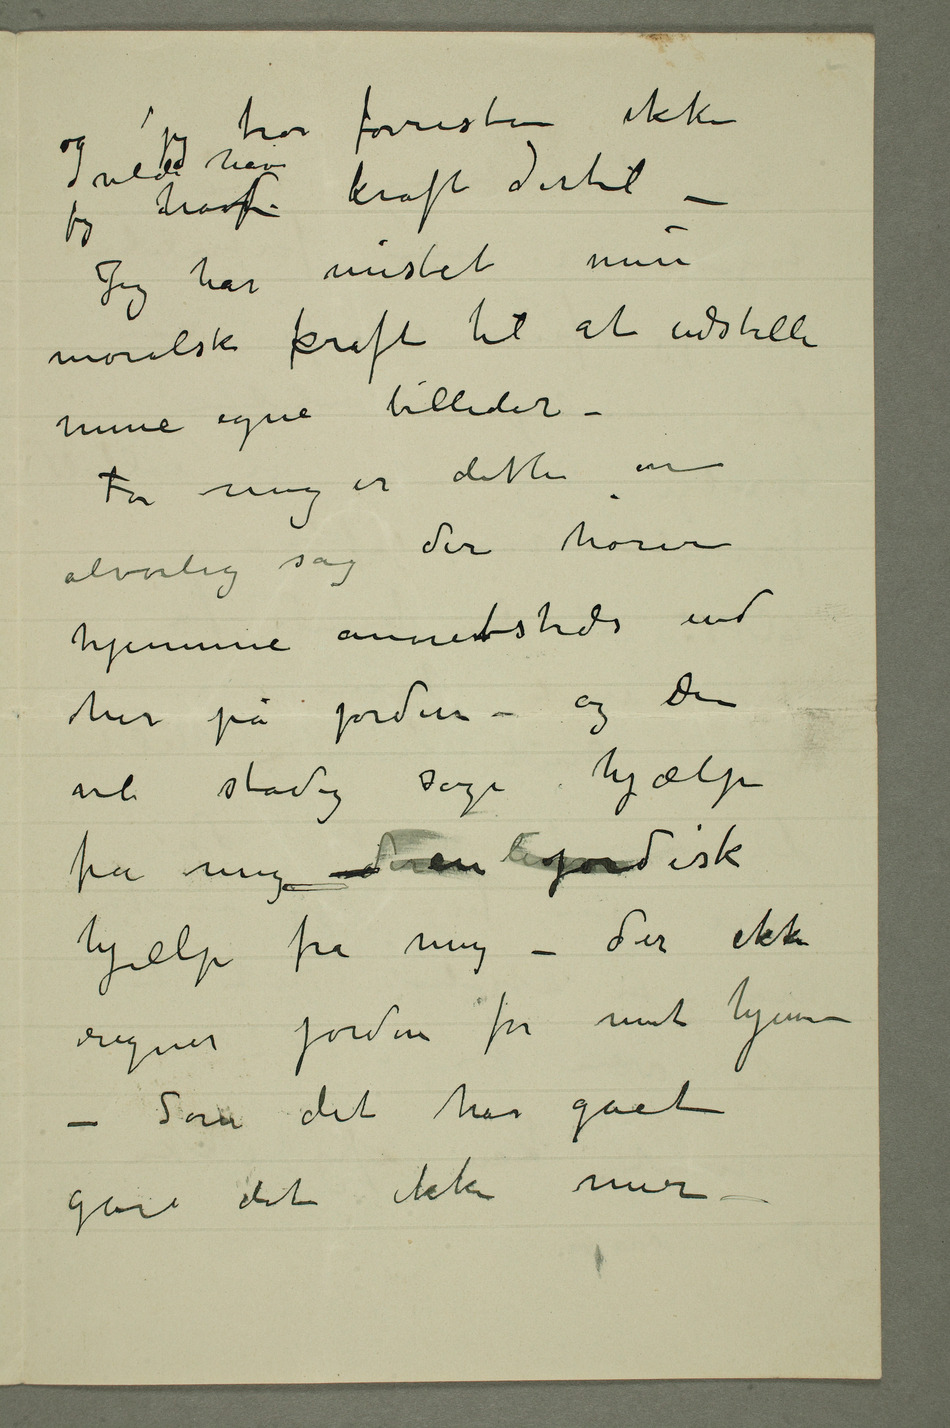 og jeg tror forresten ikke
vilde have
jeg havde kraft dertil –
Jeg har mistet min
moralske kraft til at udstille
mine egne billeder –
For mig er dette en
alvorlig sag der hører
hjemme annetsteds end
her på jorden – og den
vil stadig søge hjælp
fra mig – en jordisk
hjælp fra mig – der ikke
regner jorden for mit hjem
– Som det har gået
går det ikke mer –